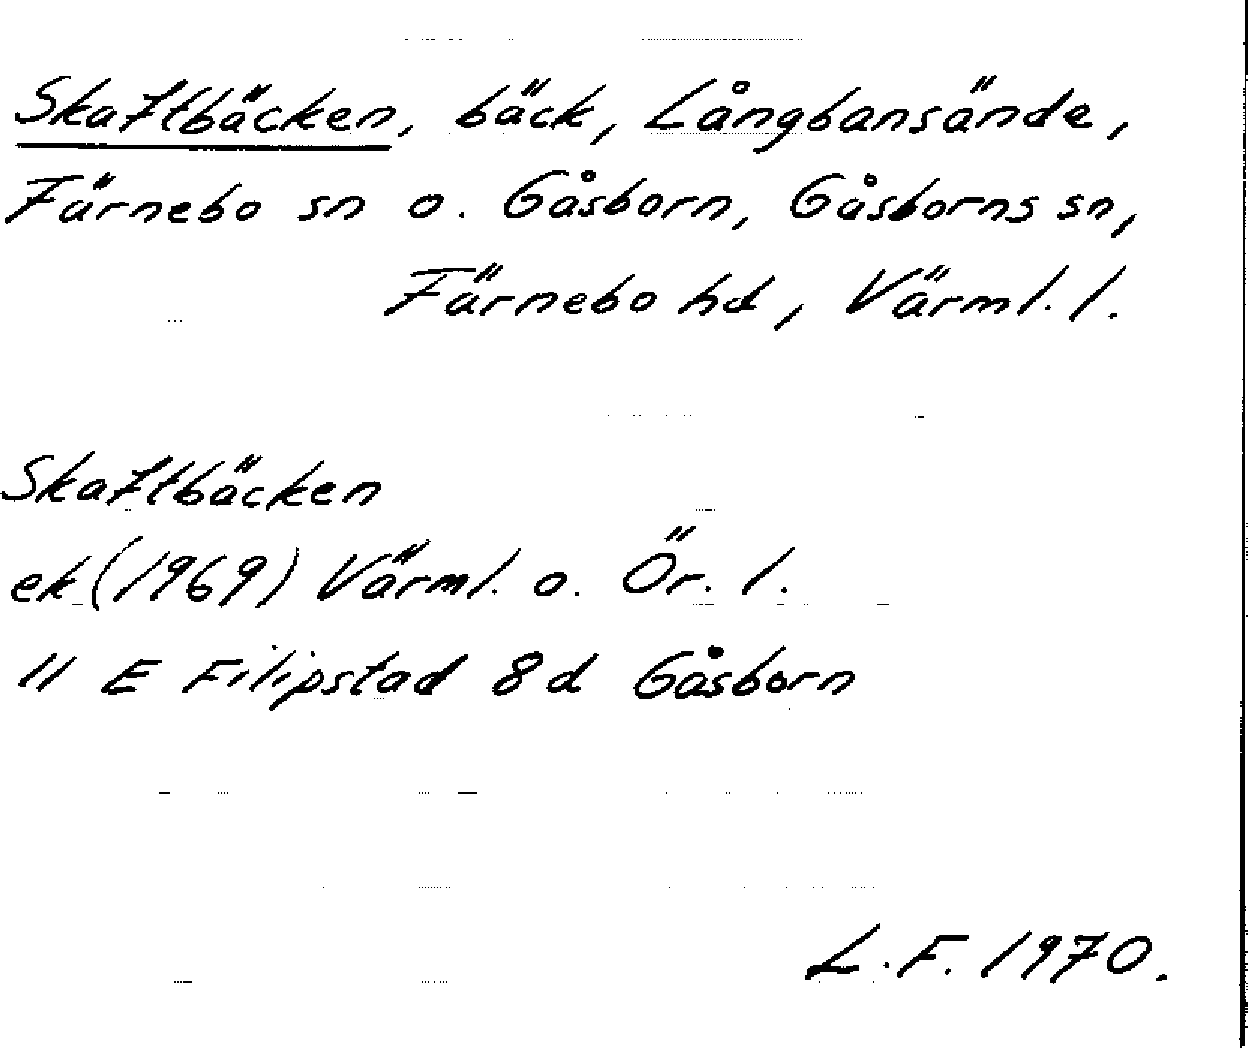 Skaftbäcken, bäck, Långbansände,
Färnebo sn o. Gåsborn, Gåsborns sn,
Färnebo hd, Värml. l.
Skaftbäcken
ek (1969) Värml. o. Ör. l.
11 E Filipstad 8 d Gåsborn
L.F. 1970.